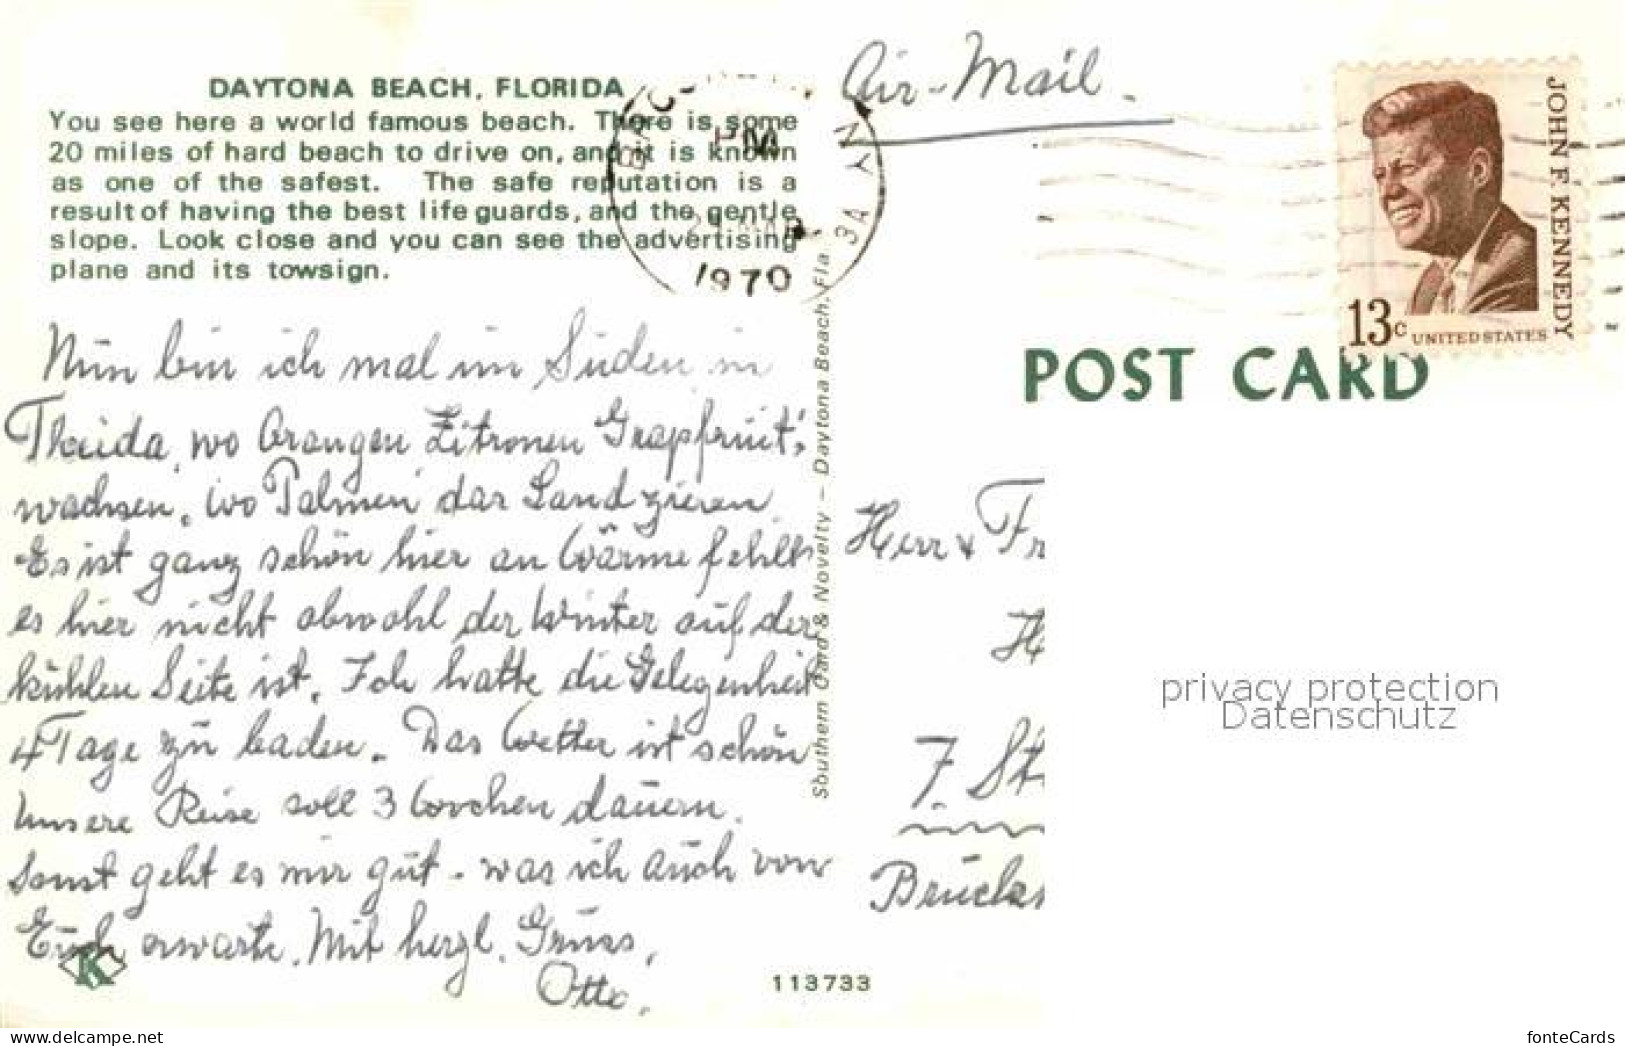 DAYTONA BEACH, FLORIDA
You see here a world famous beach. There is some
20 miles of hard beach to drive on, and it is known
as one of the safest. The safe reputation is a
result of having the best life guards, and the gentle
slope. Look close and you can see the advertising
plane and its towsign.
Nun bin ich mal im Süden in
Florida, wo Orangen Zitronen Grapfruit
wachsen, wo Palmen das Land zieren
Es ist ganz schön hier an Wärme fehlt
es hier nicht obwohl der Winter auf der
kühlen Seite ist. Ich hatte die Gelegenheit
4 Tage zu baden. Das Wetter ist schön
Unsere Reise soll 3 Wochen dauern.
Sonst geht es mir gut. was ich auch von
Euch erwarte. Mit herzl. Gruss,
Otto.
K
Southern Card & Novelty – Daytona Beach, Fla.
113733
PM
MAR
1970
N.Y.
Air-Mail
JOHN F. KENNEDY
13c UNITED STATES
POST CARD
Herr & Fr
H
7 St
Brucks
privacy protection
Datenschutz
www.delcampe.net
fonteCards